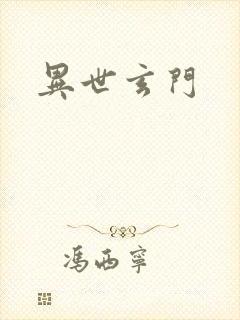 異世玄門
馮西寧